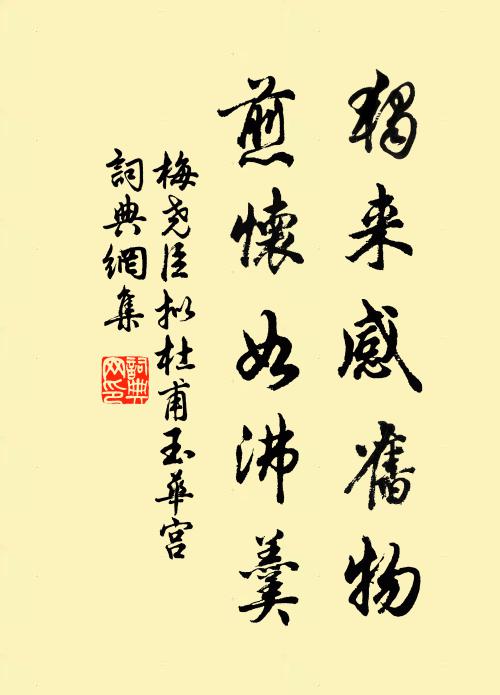 獨来感舊物
煎懷如沸羹
梅尧臣拟杜甫玉華宫
詞典網集
詞典
网印